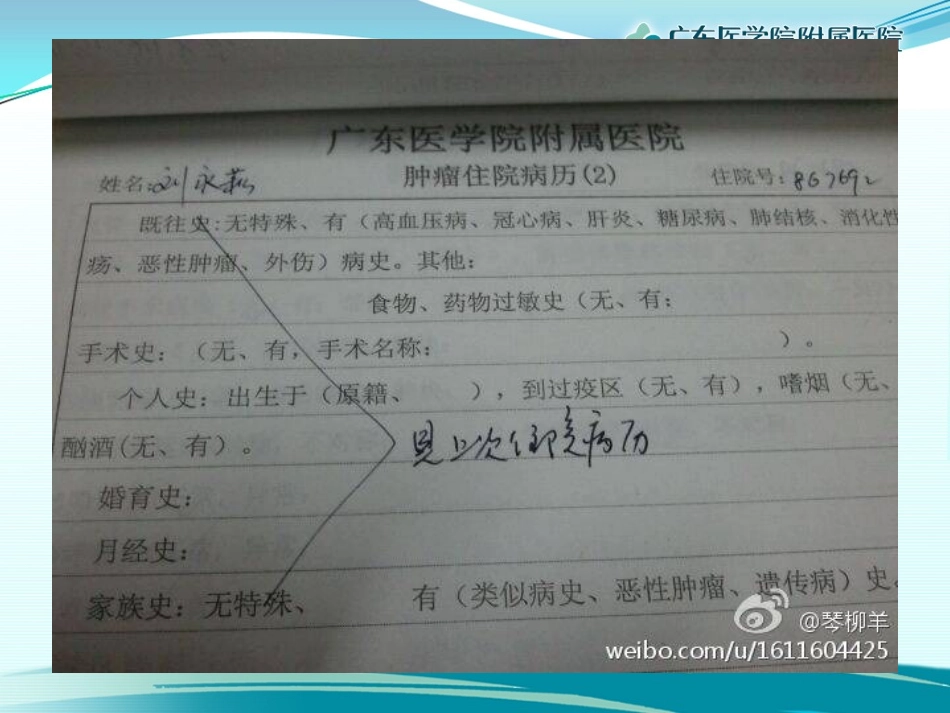 广东医学院附属医院
广东医学院附属医院
肿瘤住院病历(2)
姓名:刘永 住院号:867692
既往史:无特殊、有（高血压病、冠心病、肝炎、糖尿病、肺结核、消化性
疡、恶性肿瘤、外伤）病史。其他:
食物、药物过敏史（无、有:
手术史:（无、有，手术名称: ）。
个人史:出生于（原籍、 ），到过疫区（无、有），嗜烟（无、
酗酒(无、有）。
见上次住院病历
婚育史:
月经史:
家族史:无特殊、 有（类似病史、恶性肿瘤、遗传病）史。
@琴柳羊
weibo.com/u/1611604425